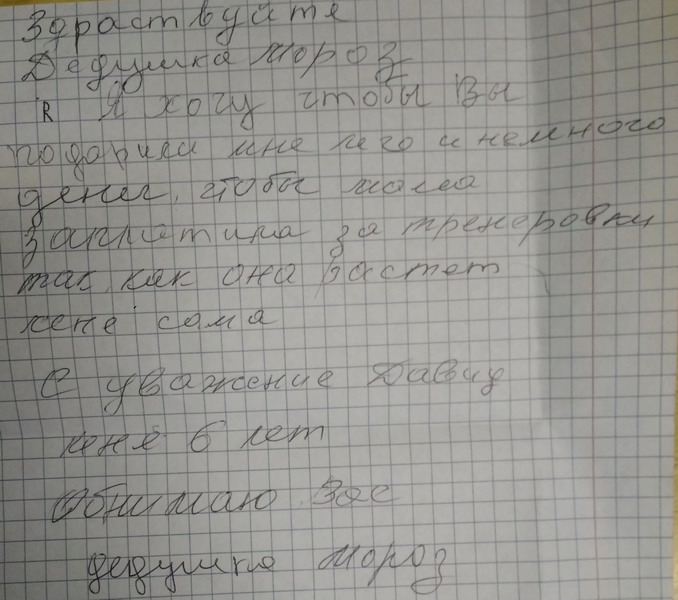 Здраствуйте
Дедушка мороз
Я Я хочу чтобы Вы
подарили мне лего и немного
денег, чтобы мама
заплатила за тренеровки
так как она растет
меня сама
С уважение Давид
мене 6 лет
Обнимаю Вас
дедушка мороз